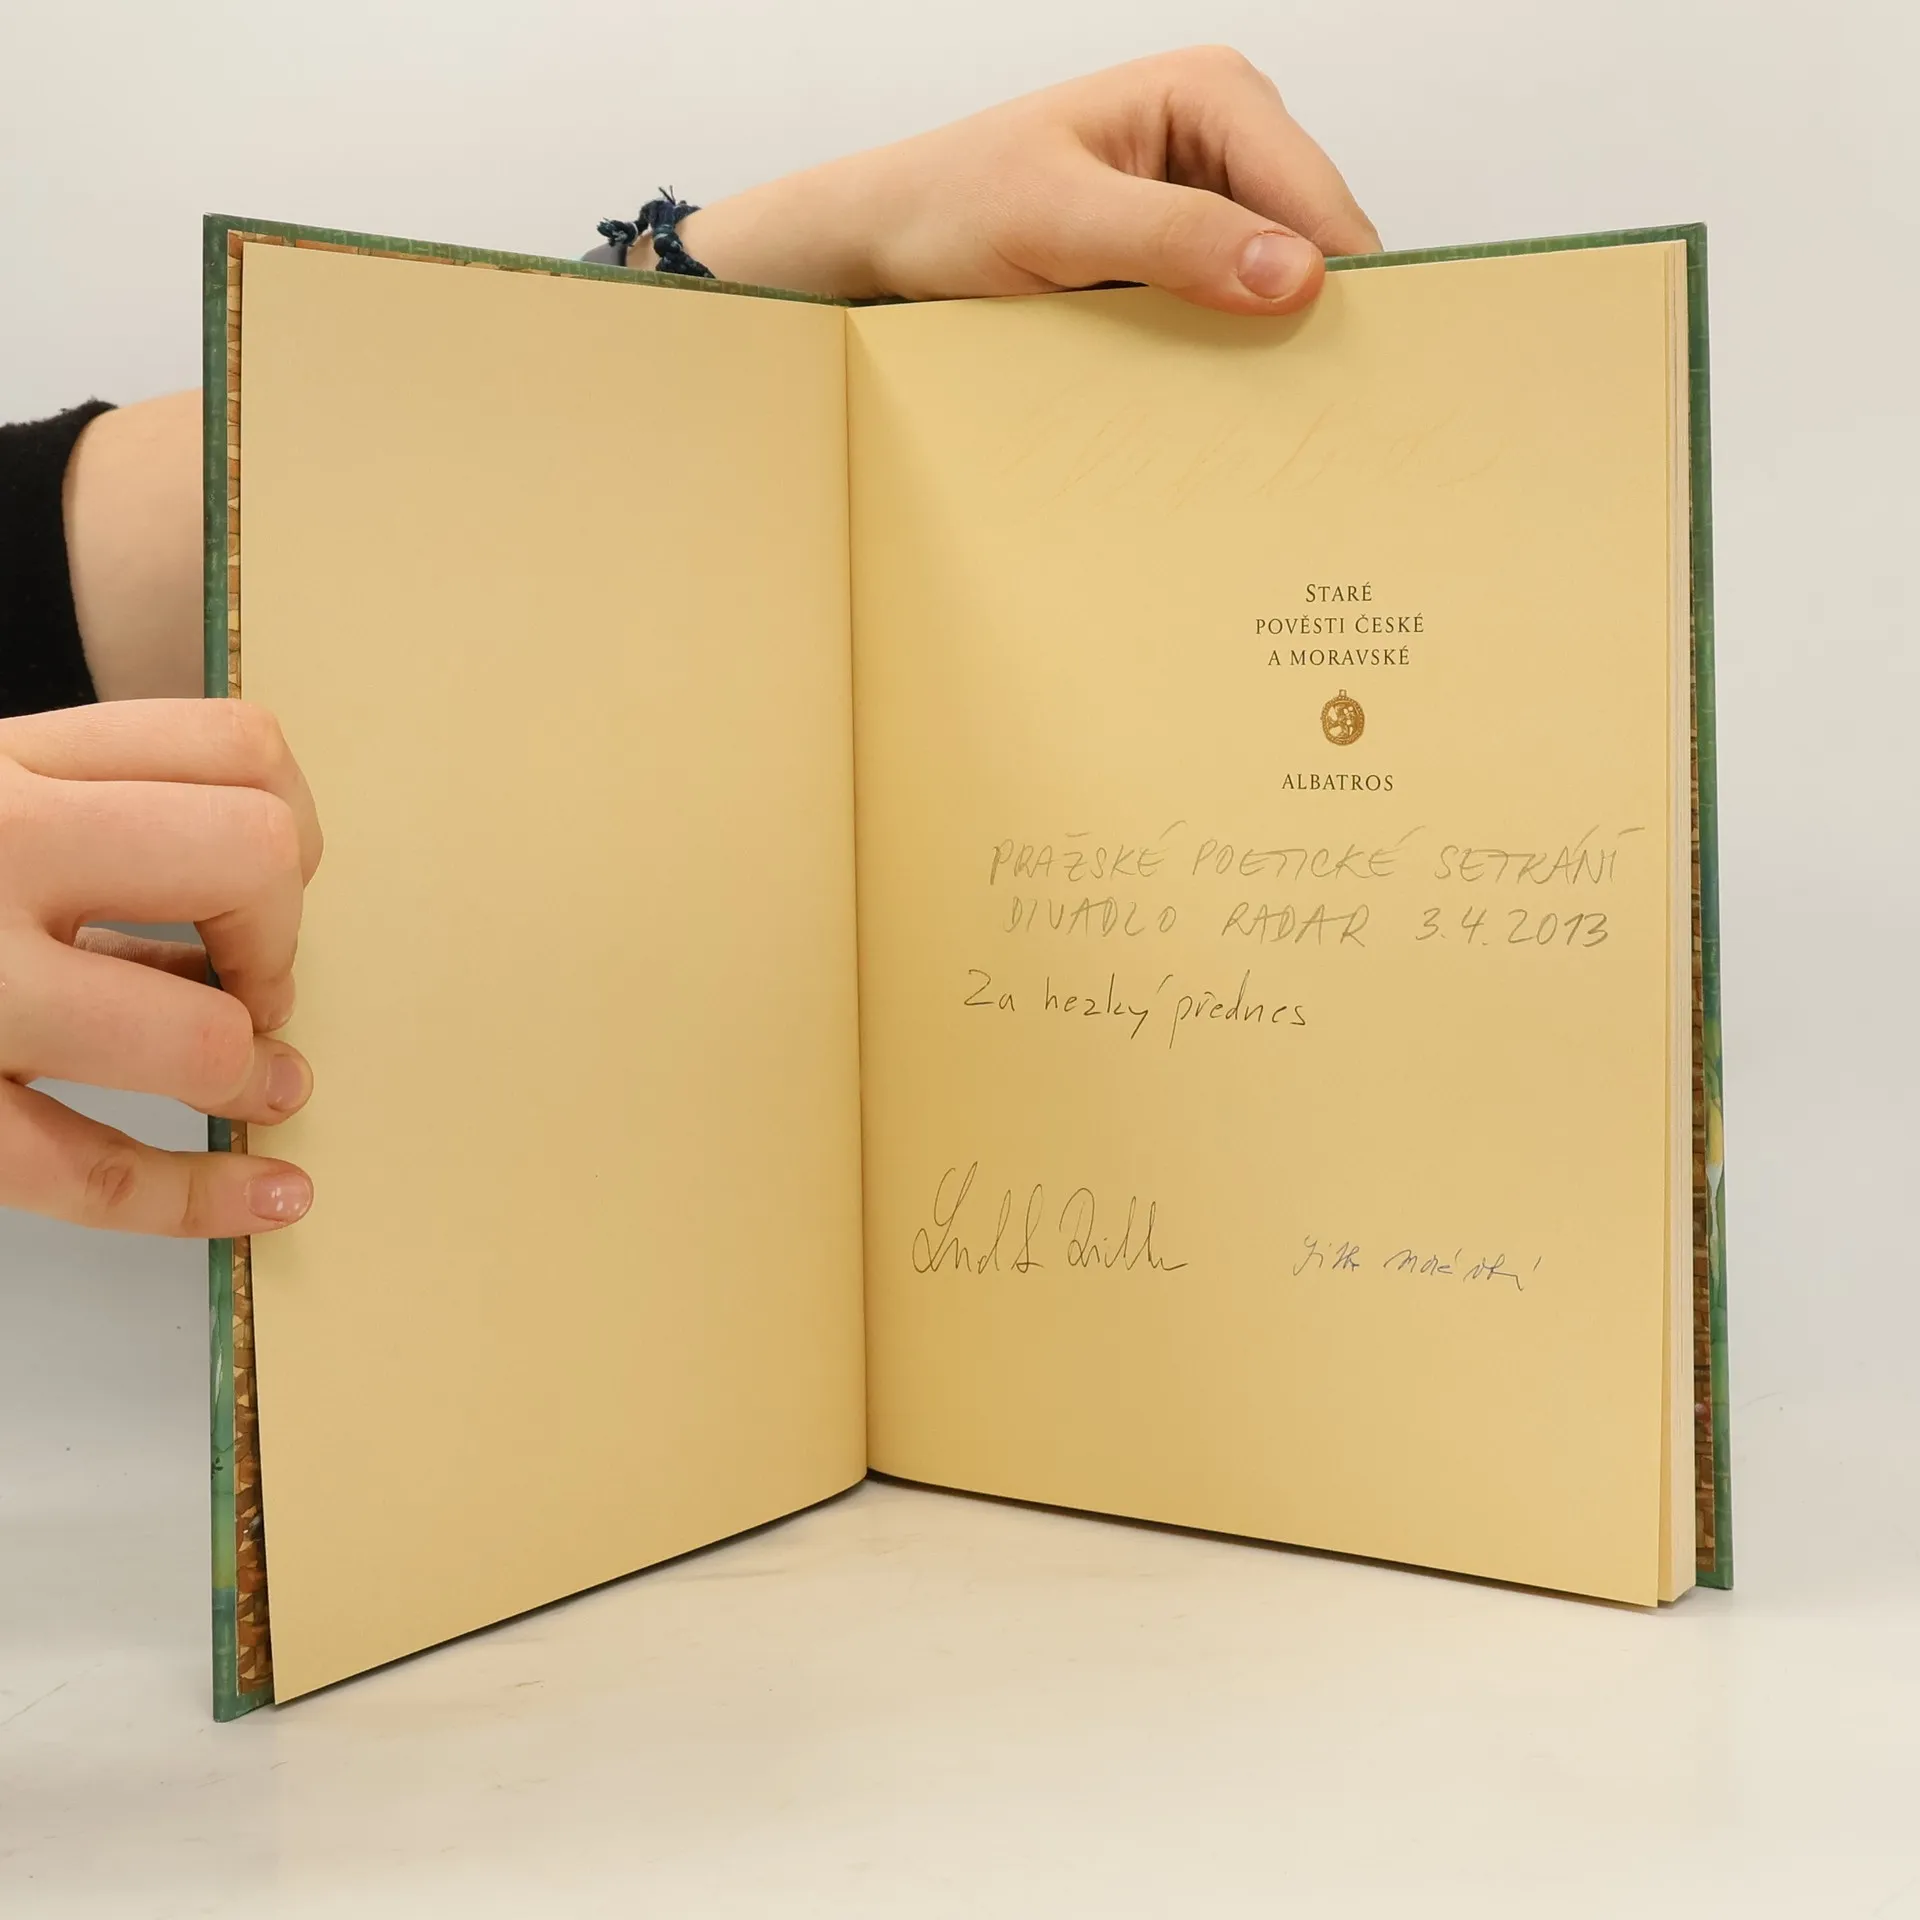 STARÉ
POVĚSTI ČESKÉ
A MORAVSKÉ
ALBATROS
PRAŽSKÉ POETICKÉ SETKÁNÍ
DIVADLO RADAR 3.4.2013
Za hezký přednes